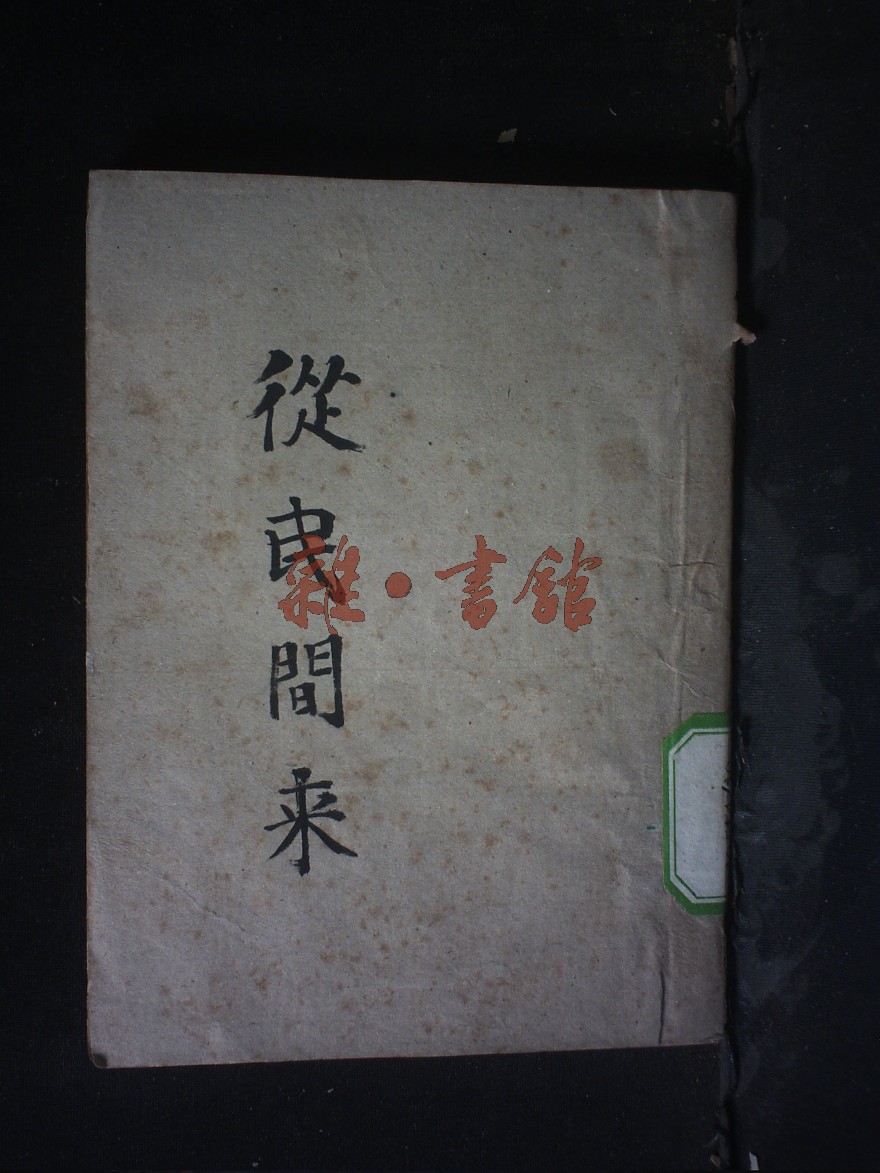 從民間来
雜·書館